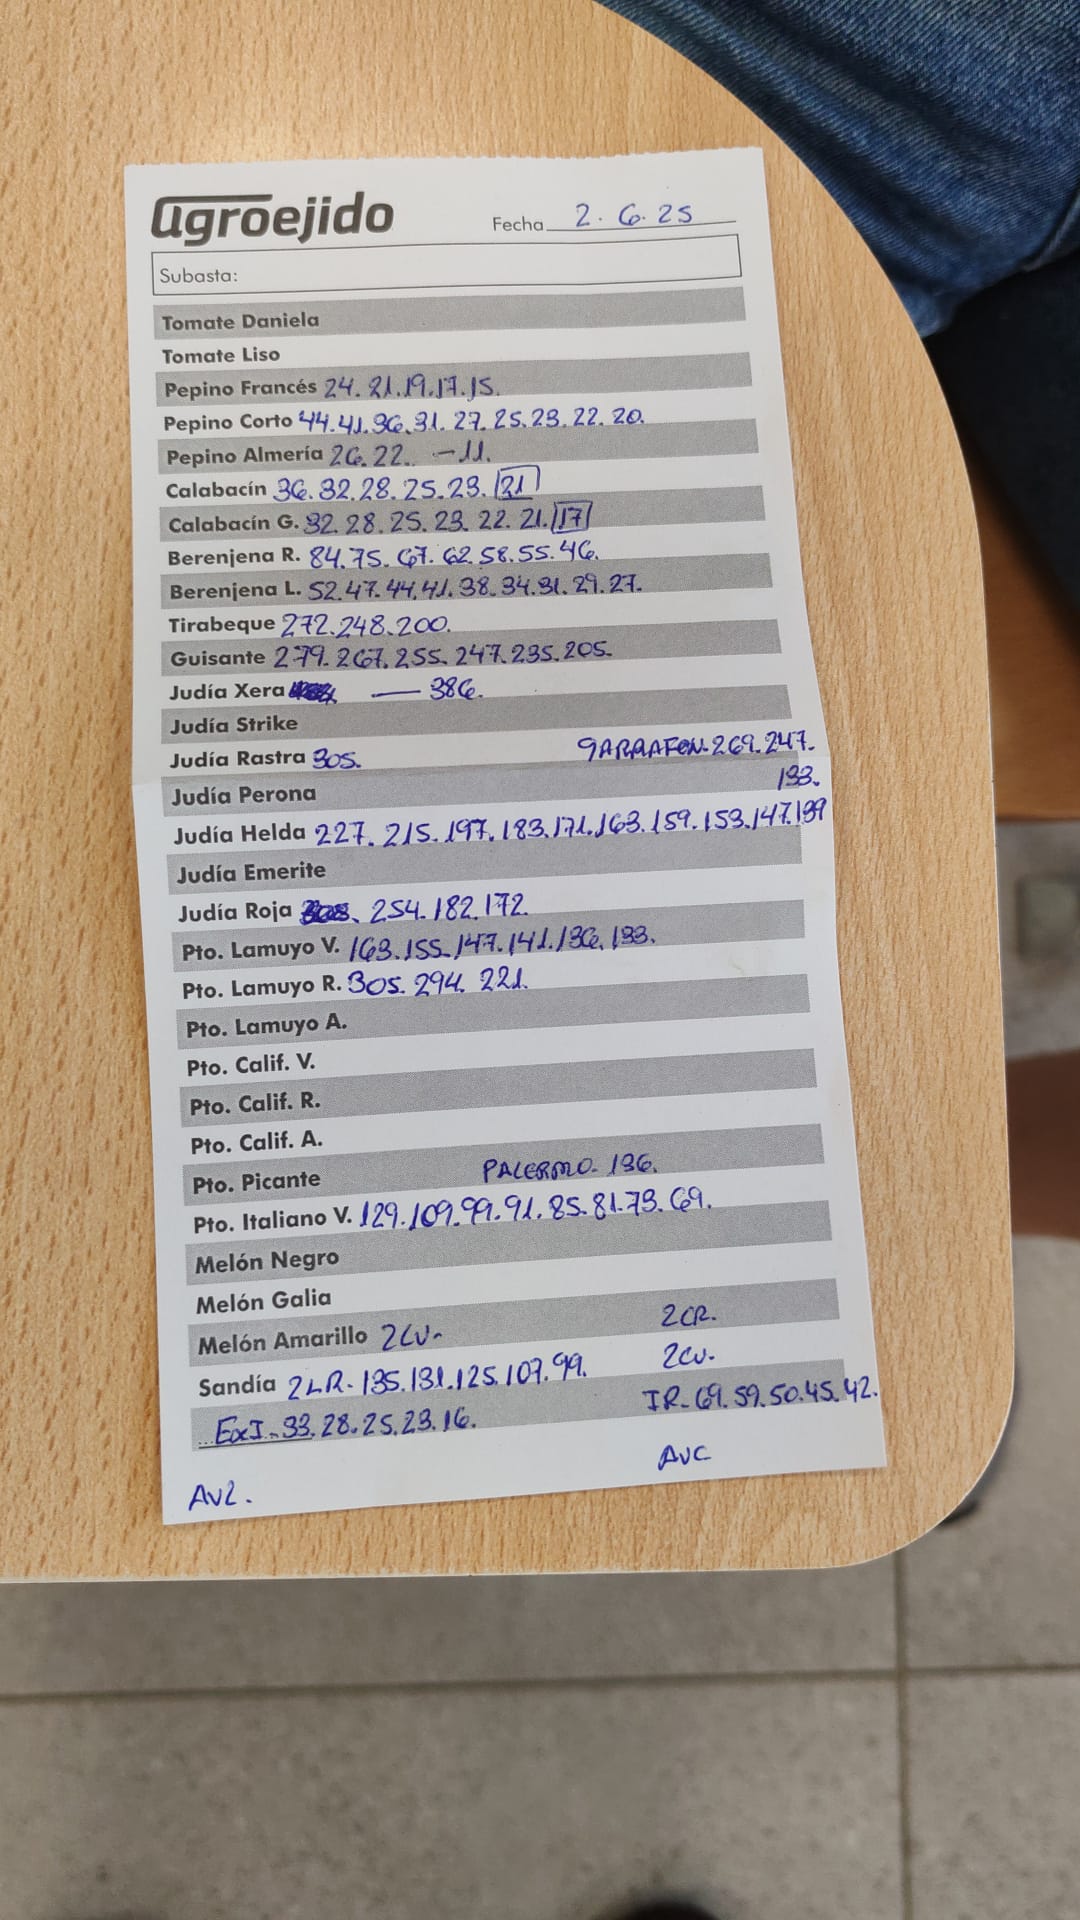 agroejido Fecha 2.6.25
Subasta:
Tomate Daniela
Tomate Liso
Pepino Francés 24.21.19.17.15.
Pepino Corto 44.41.36.31.27.25.23.22.20.
Pepino Almería 26.22. -11.
Calabacín 36.32.28.25.23.21
Calabacín G. 32.28.25.23.22.21.17
Berenjena R. 84.75.67.62.58.55.46.
Berenjena L. 52.47.44.41.38.34.31.29.27.
Tirabeque 272.248.200.
Guisante 279.267.255.247.235.205.
Judía Xera — 386.
Judía Strike
Judía Rastra 305. GARRAFON-269.247.
Judía Perona 133.
Judía Helda 227.215.197.183.171.163.159.153.147.139
Judía Emerite
Judía Roja 254.182.172.
Pto. Lamuyo V. 163.155.147.141.136.133.
Pto. Lamuyo R. 305.294.221.
Pto. Lamuyo A.
Pto. Calif. V.
Pto. Calif. R.
Pto. Calif. A.
Pto. Picante PALERMO-136.
Pto. Italiano V. 129.109.99.91.85.81.73.69.
Melón Negro
Melón Galia
Melón Amarillo 2CV- 2CR.
Sandía 2LR-135.131.125.107.99. 2CV.
33.28.25.23.16. IR-69.59.50.45.42.
AV2. AVC